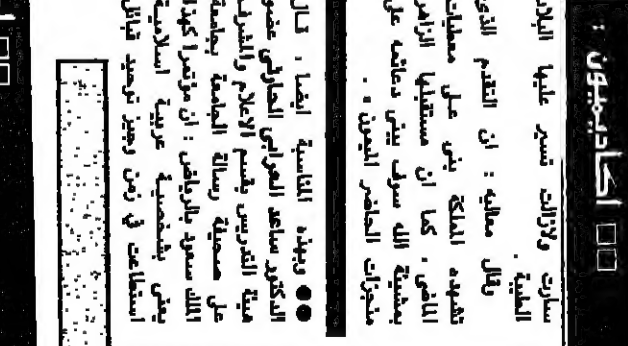 □□ أكاديميون :
سارت ولازالت تسير عليها البلاد
الطيبة .
وقال معاليه : ان التقدم الذي
تشهده المملكة بنى على معطيات
الماضي ، كما ان مستقبلها الزاهر
بمشيئة الله سوف يبنى دعائمه على
منجزات الحاضر الميمون » .
●● وبهذه المناسبة ايضا ، قال
الدكتور ساعد العرابي الحارثي عضو
هيئة التدريس بقسم الاعلام والمشرف
على صحيفة رسالة الجامعة بجامعة
الملك سعود بالرياض : ان مؤتمرا كهذا
يعنى بشخصية عربية اسلامية
استطاعت في زمن وجيز توحيد قبائل